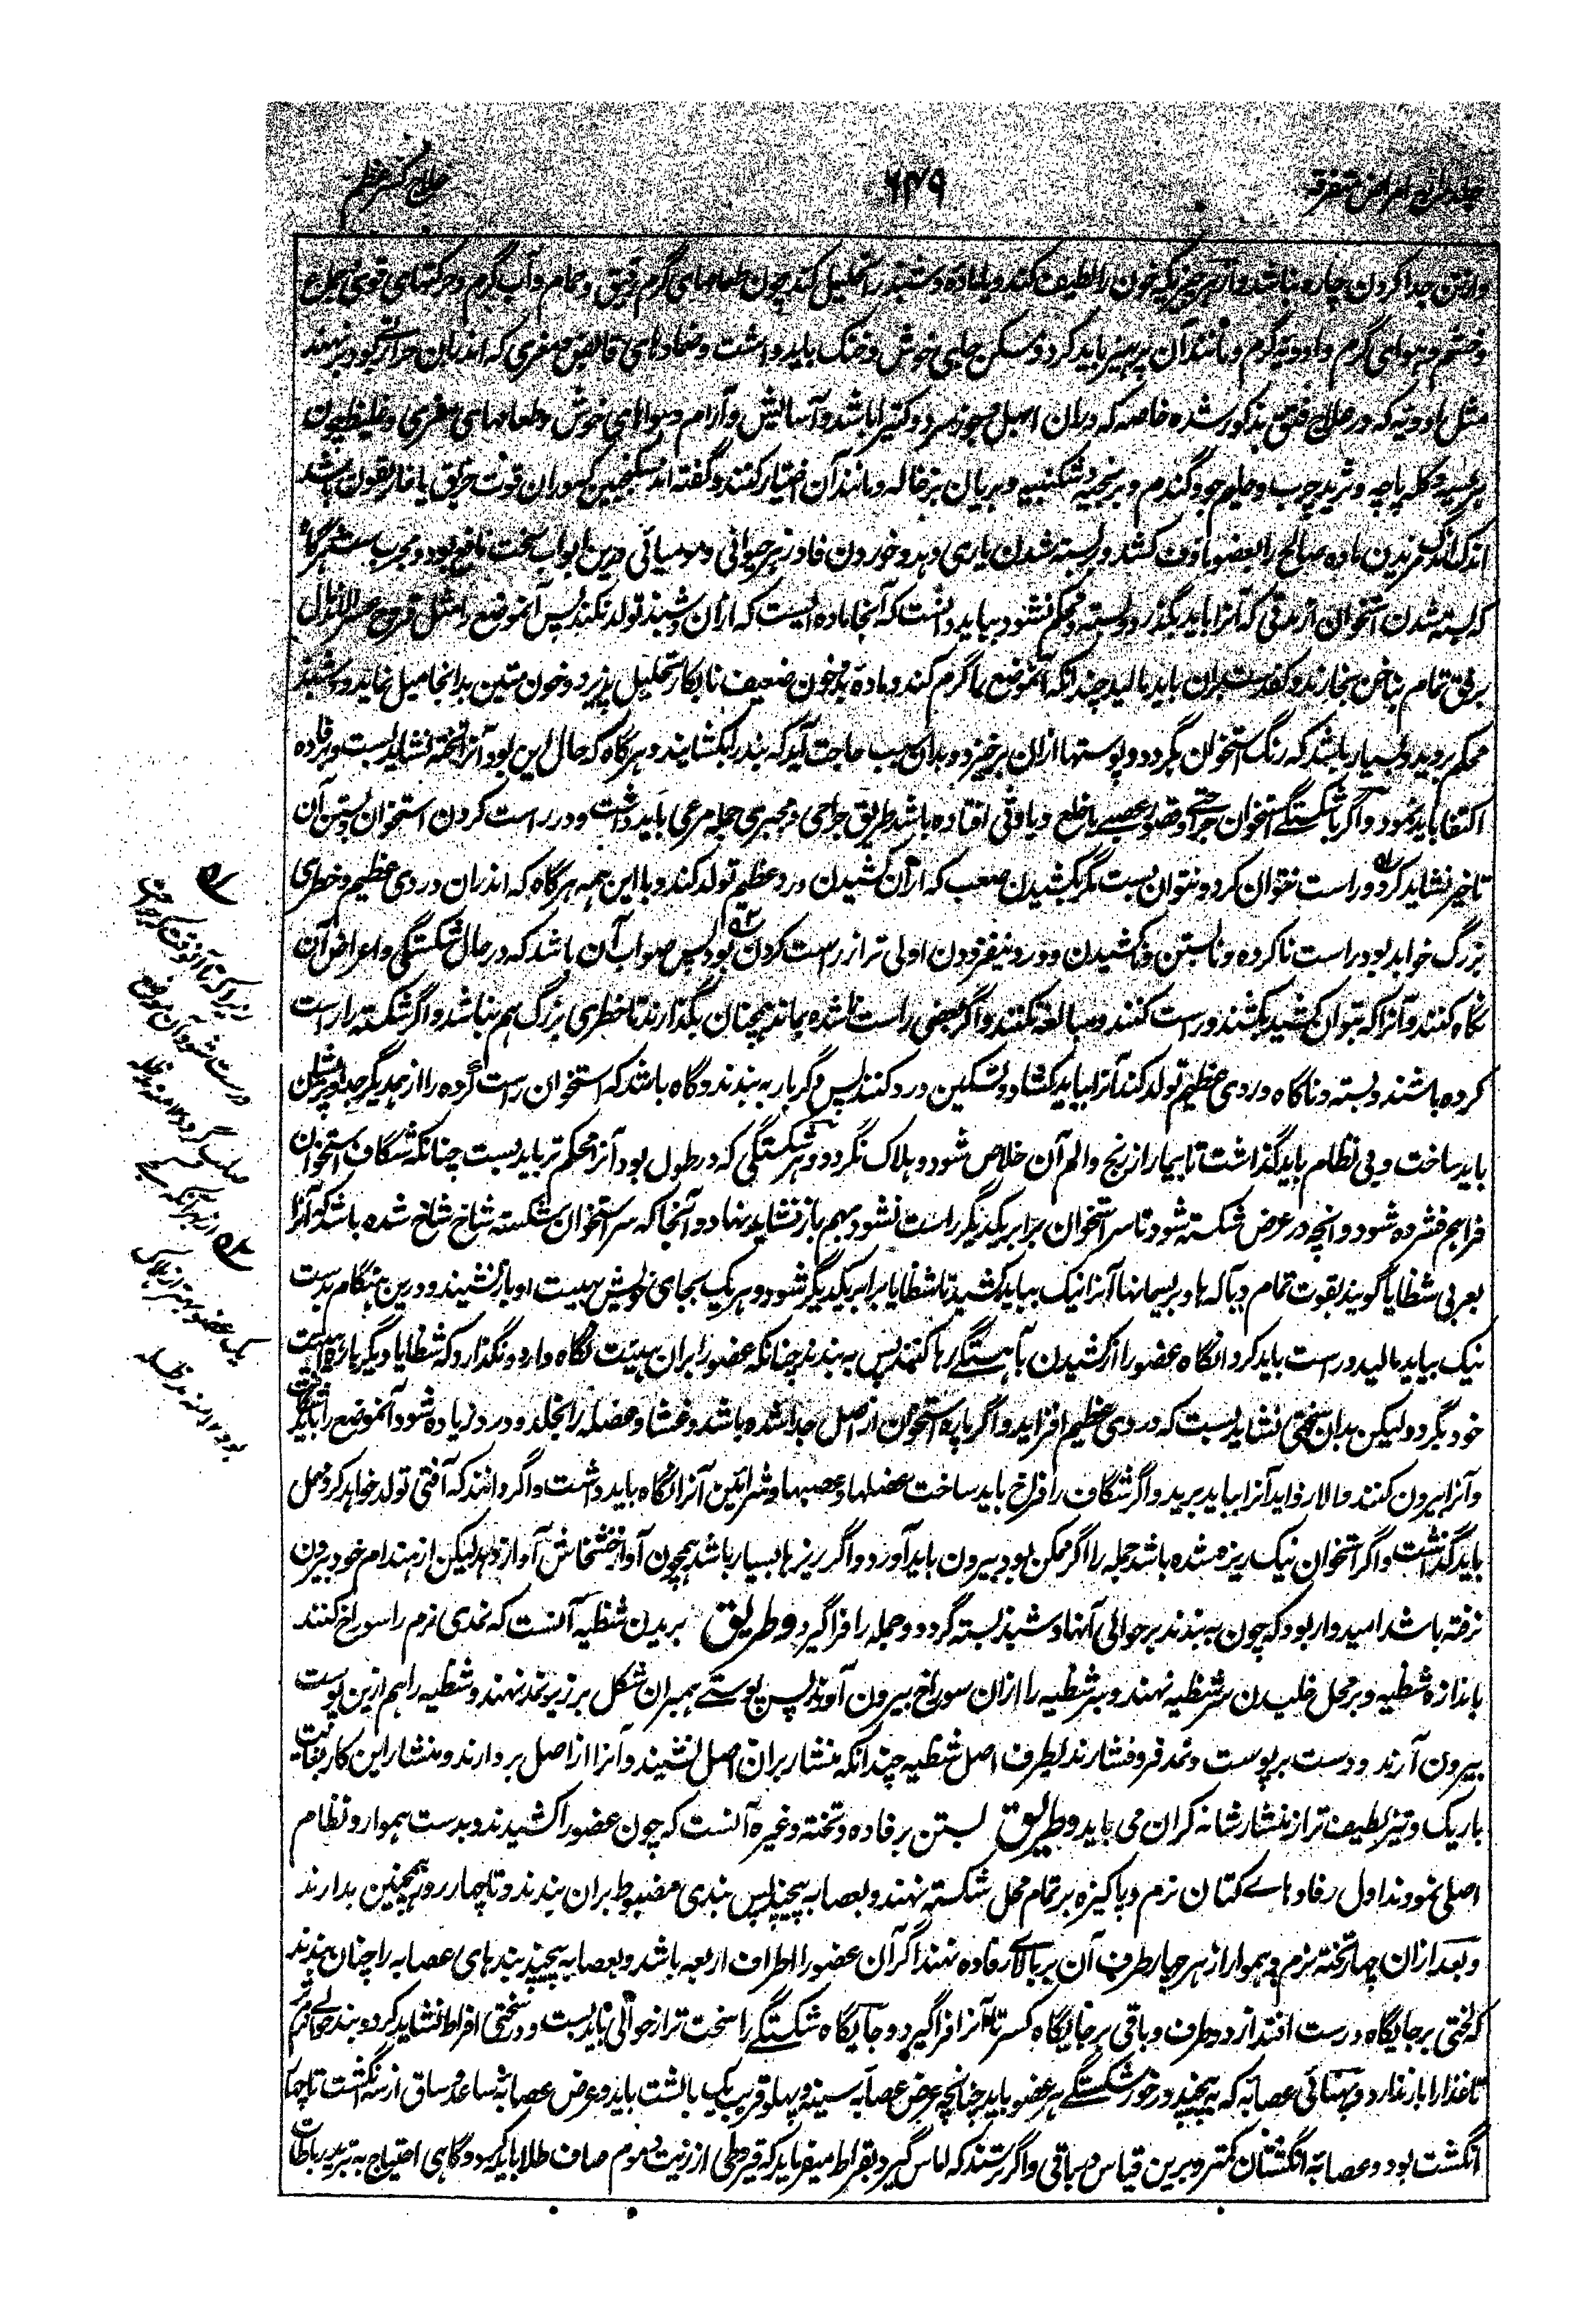 ۶۴۹
علاج کسر عظم
وازین جدا کردن چاره نباشد و از هر چیزیکه خون را لطیف کند و یا ماده دشبذ را تحلیل کند چون طعامهای گرم رقیق و حمام و آب گرم و حرکتهای قوی و جماع
و خشم و هوای گرم و ادویه گرم و مانند آن پرهیز باید کرد و مسکن جای خوش و خنک باید داشت و ضمادهای قابض و مغری که اندران حرارتی بود برنهند
مثل ادویه که در علاج فتق مذکور شده خاصه که دران ابهل و جوز سرو و کتیرا باشد و آسایش و آرام و هوای خوش و طعامهای مغری و غلیظ چون
هریسه و کله پاچه و ثرید چرب و حلیم جو و گندم و برنجینه و شکنبه و بریان بزغاله و مانند آن اختیار کنند و گفته اند سکنجبین که دران قوت خربق یا غاریقون باشد
اندک اندک مزیدن ماده صالح را بعضو ماؤف کشد و در بسته شدن یاری دهد و خوردن فادزهر حیوانی و مومیائی درین ابواب سخت نافع بود و مجرب ست هرگاه
که بسته شدن استخوان از مدتی که آنرا باید بگذرد و بسته و محکم نشود بباید دانست که آنجا ماده ایست که ازان دشبذ تولد نکند پس آنموضع را مثل قروح عسرالاندمال
برفق تمام بناخن بخارند و کف دست بران باید مالید چندانکه آنموضع را گرم کند و ماده بد و خون ضعیف نابکار تحلیل پذیرد و خون متین بدانجا میل نماید و دشبذ
محکم بروید و بسیار باشد که رنگ استخوان بگردد و پوستها ازان برخیزد و بدان سبب حاجت آید که بند را بکشایند و هرگاه که حال این بود آنرا تخته نشاید بست و برفاده
اکتفا باید نمود و اگر با شکستگی استخوان جراحتی و قطع عصبی یا خلع و یا وثی افتاده باشد طریق جراحی و مجبری جمله مرعی باید داشت و در راست کردن استخوان و بستن آن
تاخیر نشاید کرد و راست نتوان کرد و نتوان بست مگر بکشیدن صعب که از آن کشیدن درد عظیم تولد کند و با این همه هرگاه که اندران دردی عظیم و خطری
بزرگ خواهد بود راست ناکرده و نابستن و ناکشیدن و درد نیفزودن اولی تر از راست کردن بود پس صواب آن باشد که در حال شکستگی و اعراض آن
نگاه کنند و آنرا که بتوان کشید بکشند و راست کنند و مبالغه نکنند و اگر بعضی راست نشده بماند همچنان بگذارند تا خطری بزرگ هم نباشد و اگر شکسته را راست
کرده باشند و بسته و ناگاه دردی عظیم تولد کند آنرا بباید کشاد و تسکین درد کنند پس دگر بار به بندند و گاه باشد که استخوان راست کرده را از همدیگر جدا و پریشان
باید ساخت و بی نظام باید گذاشت تا بیمار از رنج و الم آن خلاص شود و هلاک نگردد و هر شکستگی که در طول بود آنرا محکم تر باید بست چنانکه شگاف استخوان
فراهم فشرده شود و انچه در عرض شکسته شود تا سر استخوان برابر یکدیگر راست نشود بهم باز نشاید نهاد و آنجا که سر استخوان شکسته شاخ شاخ شده باشد که آنرا
بعربی شظایا گویند بقوت تمام و بآلها و بریسمانها آنرا نیک بباید کشید تا شظایا برابر یکدیگر شود و هر یک بجای خویش بهیئت او باز نشیند و درین هنگام بدست
نیک بباید مالید و راست باید کرد و انگاه عضو را از کشیدن بآهستگی رها کنند پس به بندند چنانکه عضو را بران هیئت نگاه دارد و نگذارد که شظایا دیگر باره از هیئت
خود بگردد و لیکن بدان سختی نشاید بست که دردی عظیم افزاید و اگر پاره استخوان از اصل جدا شده باشد و غشا و عضله را بخلد و درد زیاده شود آنموضع را بباید شگافت
و آنرا بیرون کنند و الا زواید آنرا بباید برید و اگر شگاف را فراخ باید ساخت عضلها و عصبها و شرائین آنرا نگاه باید داشت و اگر دانند که آفتی تولد خواهد کرد مهمل
باید گذاشت و اگر استخوان نیک ریزه شده باشد جمله را اگر ممکن بود بیرون باید آورد و اگر ریزها بسیار باشد همچون آواز خشخاش آواز دهد لیکن از هندام خود بیرون
نرفته باشد امیدوار بود که چون به بندند بر حوالی آنها دشبذ بسته گردد و جمله را فراگیرد وطریق بریدن شظیه آنست که نمدی نرم را سوراخ کنند
باندازه شظیه و بر محل خلیدن سر شظیه نهند و سر شظیه را ازان سوراخ بیرون آورند پس پوستے هم بران شکل بر زبر نمد نهند و شظیه را هم ازین پوست
بیرون آرند و دست بر پوست و نمد فرو فشارند بطرف اصل شظیه چندانکه منشار بران اصل نشیند و آنرا از اصل بردارند و منشار این کار بغایت
باریک و تیز و لطیف تر از منشار شانه گران می باید وطریق بستن برفاده و تخته و غیره آنست که چون عضو را کشیدند و بدست هموار و نظام
اصلی نمودند اول رفادهاے کتان نرم و پاکیزه بر تمام محل شکسته نهند و بعصابه پیچند پس بندی مضبوط بران بندند و تا چهار روز همچنین بدارند
و بعد ازان چهار تخته نرم و هموار از هر چهار طرف آن بر بالای رفاده نهند اگر آن عضو را اطراف اربعه باشد و بعصابه پیچند و بندهای عصابه را چنان بندند
که لختی بر جایگاه درست افتد از دو طرف و باقی بر جایگاه کسر تا آنرا فراگیرد و جایگاه شکستگے را سخت تر از حوالی باید بست و در سختی افراط نشاید کرد و بند حوالی نرم تر
تا غذا را باز ندارد و پهنائی عصابه که به پیچند در خور شکستگے هر عضو باید چنانچه عرض عصابه سینه و پهلو قریب یک بالشت باید و عرض عصابه ساعد و ساق از سه انگشت تا چهار
انگشت بود و عصابه انگشتان کمتر و برین قیاس باقی و اگر ترسند که اماس گیرد بقراط میفرماید که قیروطی از زیت و موم صاف طلا باید کرد و گاهی احتیاج به تبرید رباطات
زیرا که تا آنوقت که جراحت
درست شود آن موضع
صلب گردد ۱۲ منه مدظله
از بهر آنکه فساد
یک عضو بهتر از هلاک
بود ۱۲ منه مدظله